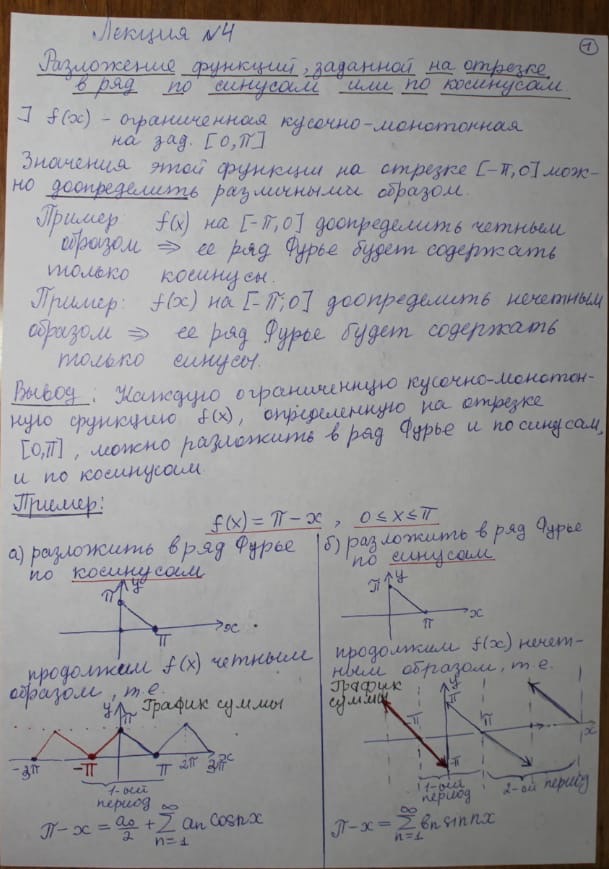 Лекция №4
1
Разложение функций, заданной на отрезке
в ряд по синусам или по косинусам.
] f(x) - ограниченная кусочно-монотонная
на зад. [0,π]
Значения этой функции на отрезке [-π,0] мож-
но доопределить различными образом.
Пример f(x) на [-π,0] доопределить четным
образом ⇒ ее ряд Фурье будет содержать
только косинусы.
Пример: f(x) на [-π,0] доопределить нечетным
образом ⇒ ее ряд Фурье будет содержать
только синусы.
Вывод: Каждую ограниченную кусочно-монотон-
ную функцию f(x), определенную на отрезке
[0,π], можно разложить в ряд Фурье и по синусам,
и по косинусам.
Пример:
f(x) = π-x, 0≤x≤π
а) разложить в ряд Фурье
по косинусам
y
π
π
x
продолжим f(x) четным
образом, т.е.
y
График суммы
π
-3π
-π
π
2π
3π
x
1-ый
период
π-x = a₀/2 + ∑_{n=1}^{∞} aₙ cosnx
б) разложить в ряд Фурье
по синусам
y
π
π
x
продолжим f(x) нечет-
ным образом, т.е.
График
суммы
y
π
-π
π
x
-π
1-ый
период
2-ой период
π-x = ∑_{n=1}^{∞} bₙ sinnx